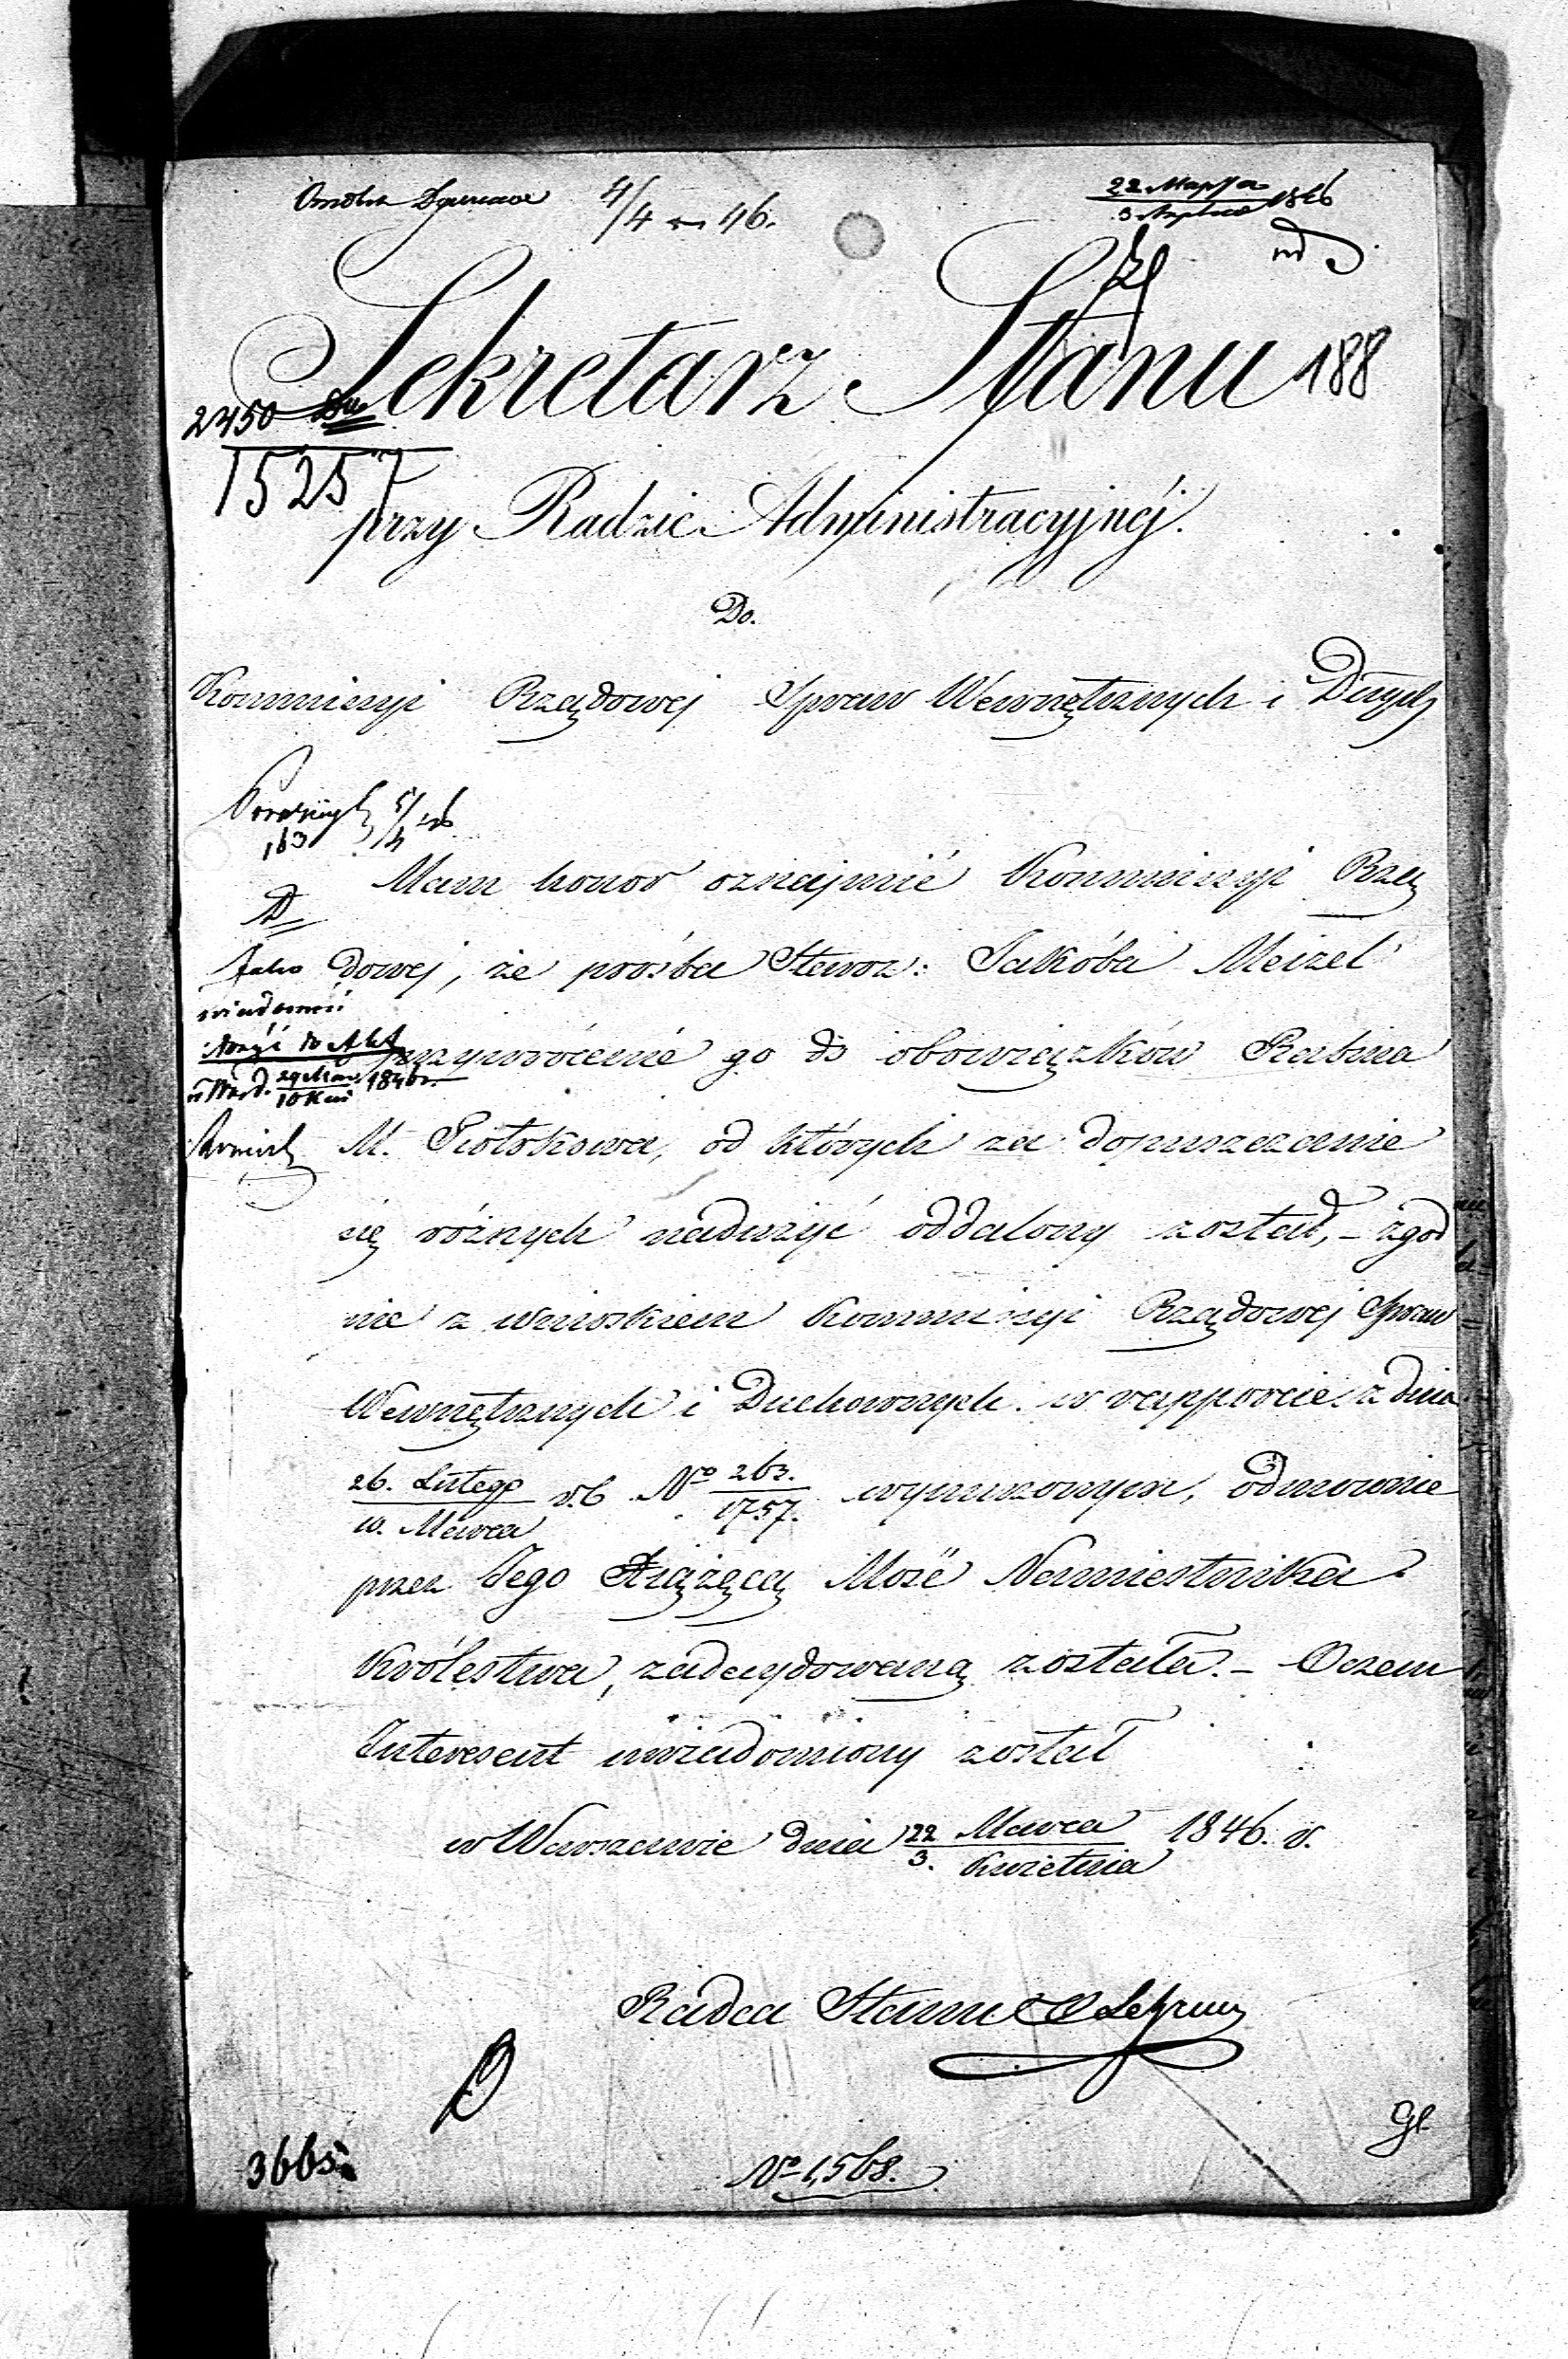 4/4 46.
22 Марта
3 Апреля 1846
Sekretarz Stanu
188
2450
15257
przy Radzie Administracyjnéj.
Do.
Kommissyi Rządowej Spraw Wewnętrznych i Duch
163
5/4 46
Mam honor oznajmić Kommissyi Rzą
Jako
wiadomość
dowej, że prośba Staroz: Jakóba Meizel
złożyć do Akt
o przywrócenie go do obowiązków Rabina
1846 r.
M. Piotrkowa, od których za dopuszczenie
się różnych nadużyć oddalony został, – zgod
nie z wnioskiem Kommissyi Rządowej Spraw
Wewnętrznych i Duchownych w rapporcie z dnia
26. Lutego
10. Marca r. b. No 263.
1757. wynurzonym, odmownie
przez Jego Xiążęcą Mość Namiestnika
Królestwa, zadecydowaną została. – O czem
Interesent uwiadomiony został
w Warszawie dnia 22 Marca
3. Kwietnia 1846. r.
Radca Stanu
3665
No 1,568.